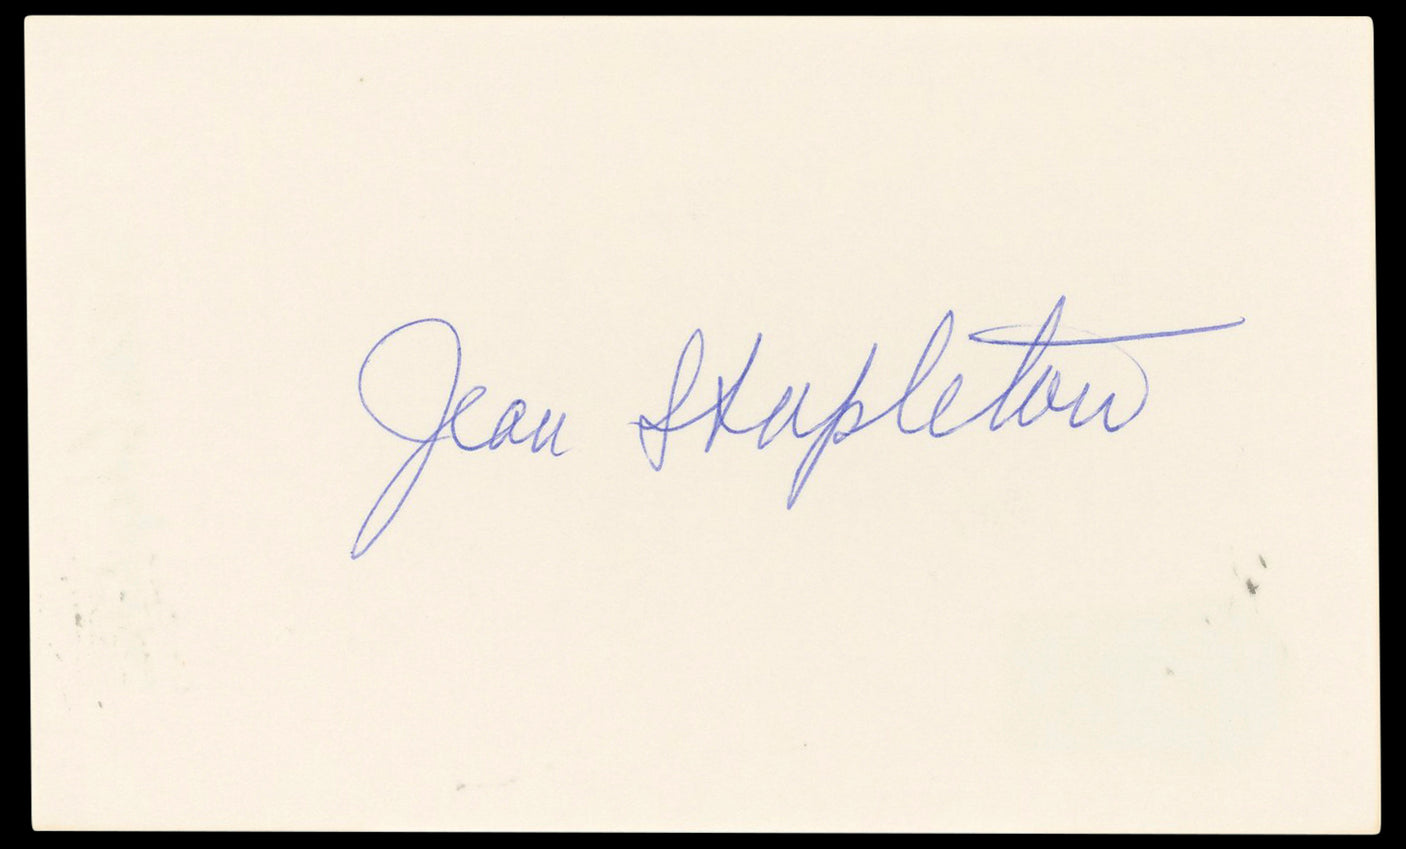 Jean Stapleton